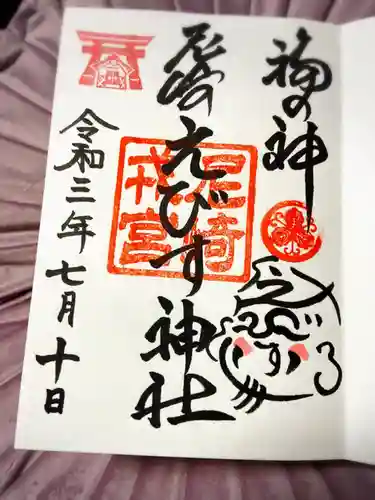 福の神
尼崎えびす神社
尼崎
戎宮
えびす
令和三年七月十日